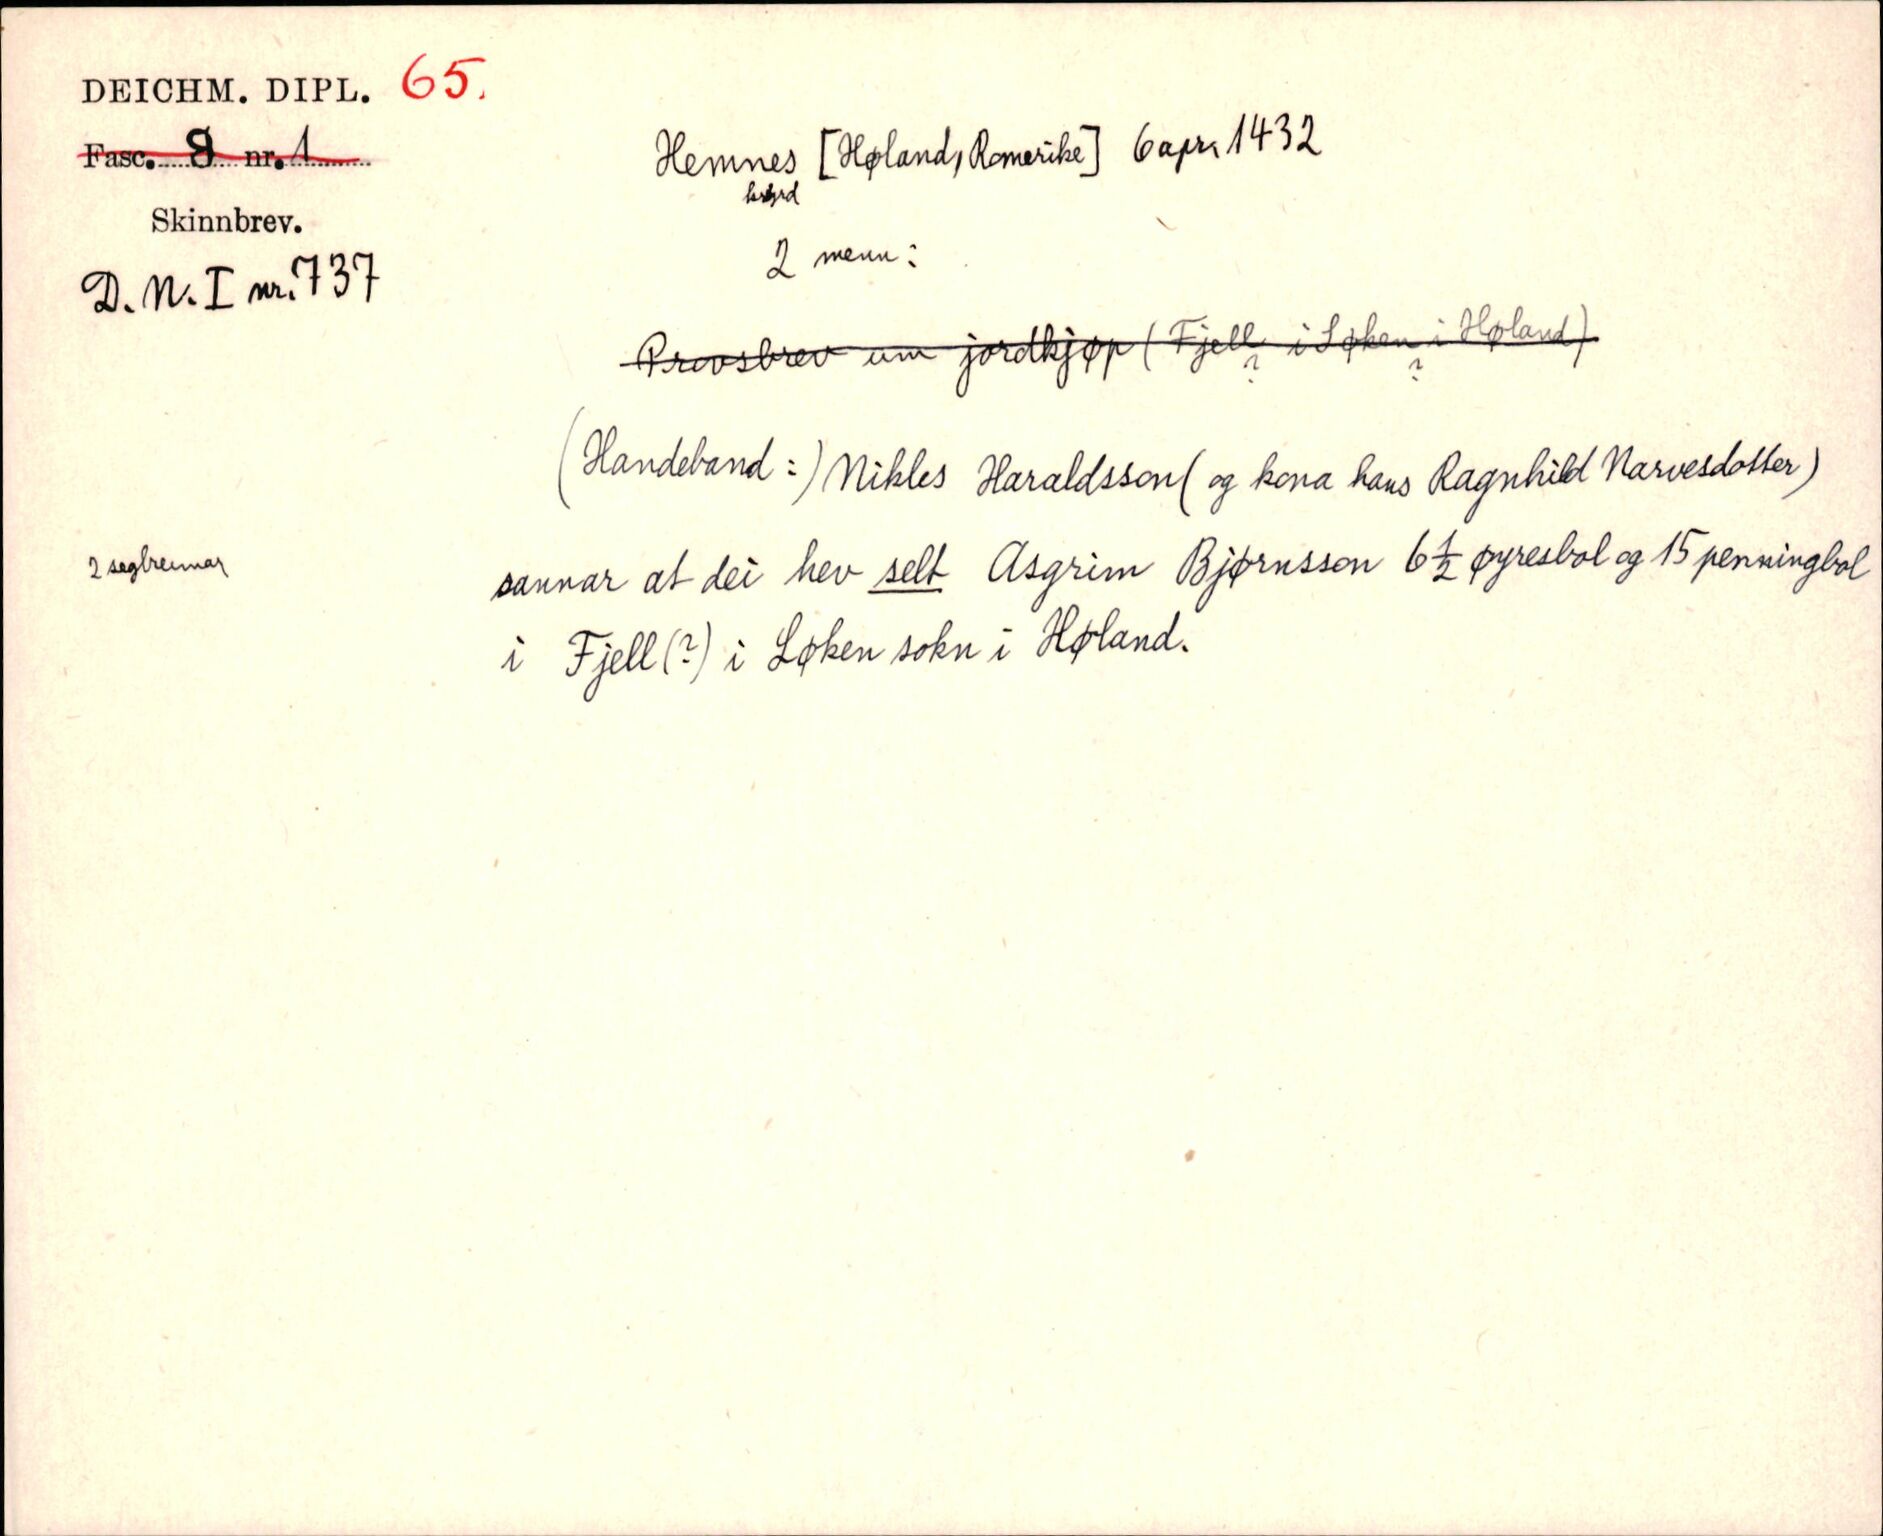 DEICHM. DIPL. 65.
Fasc. 8 nr. 1
Skinnbrev.
D. N. I nr. 737
Hemnes [Høland, Romerike] 6 apr. 1432
2 menn:
Provsbrev um jordkjøp (Fjell i Løken i Høland)
? ?
(Handeband:) Nikles Haraldsson (og kona hans Ragnhild Narvesdotter)
2 segbreimar
sannar at dei hev selt Asgrim Bjørnsson 6 1/2 øyresbol og 15 penningbol
i Fjell (?) i Løken sokn i Høland.